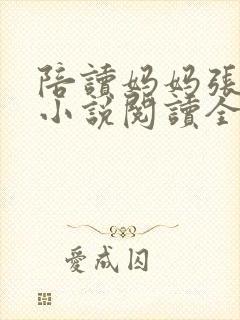 陪讀媽媽張
小說閱讀全
愛成囚